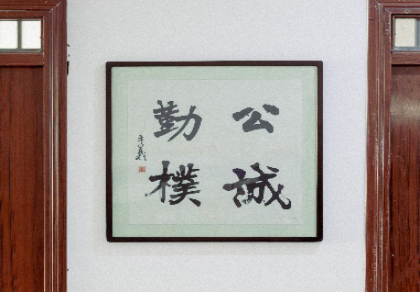 公誠
勤樸